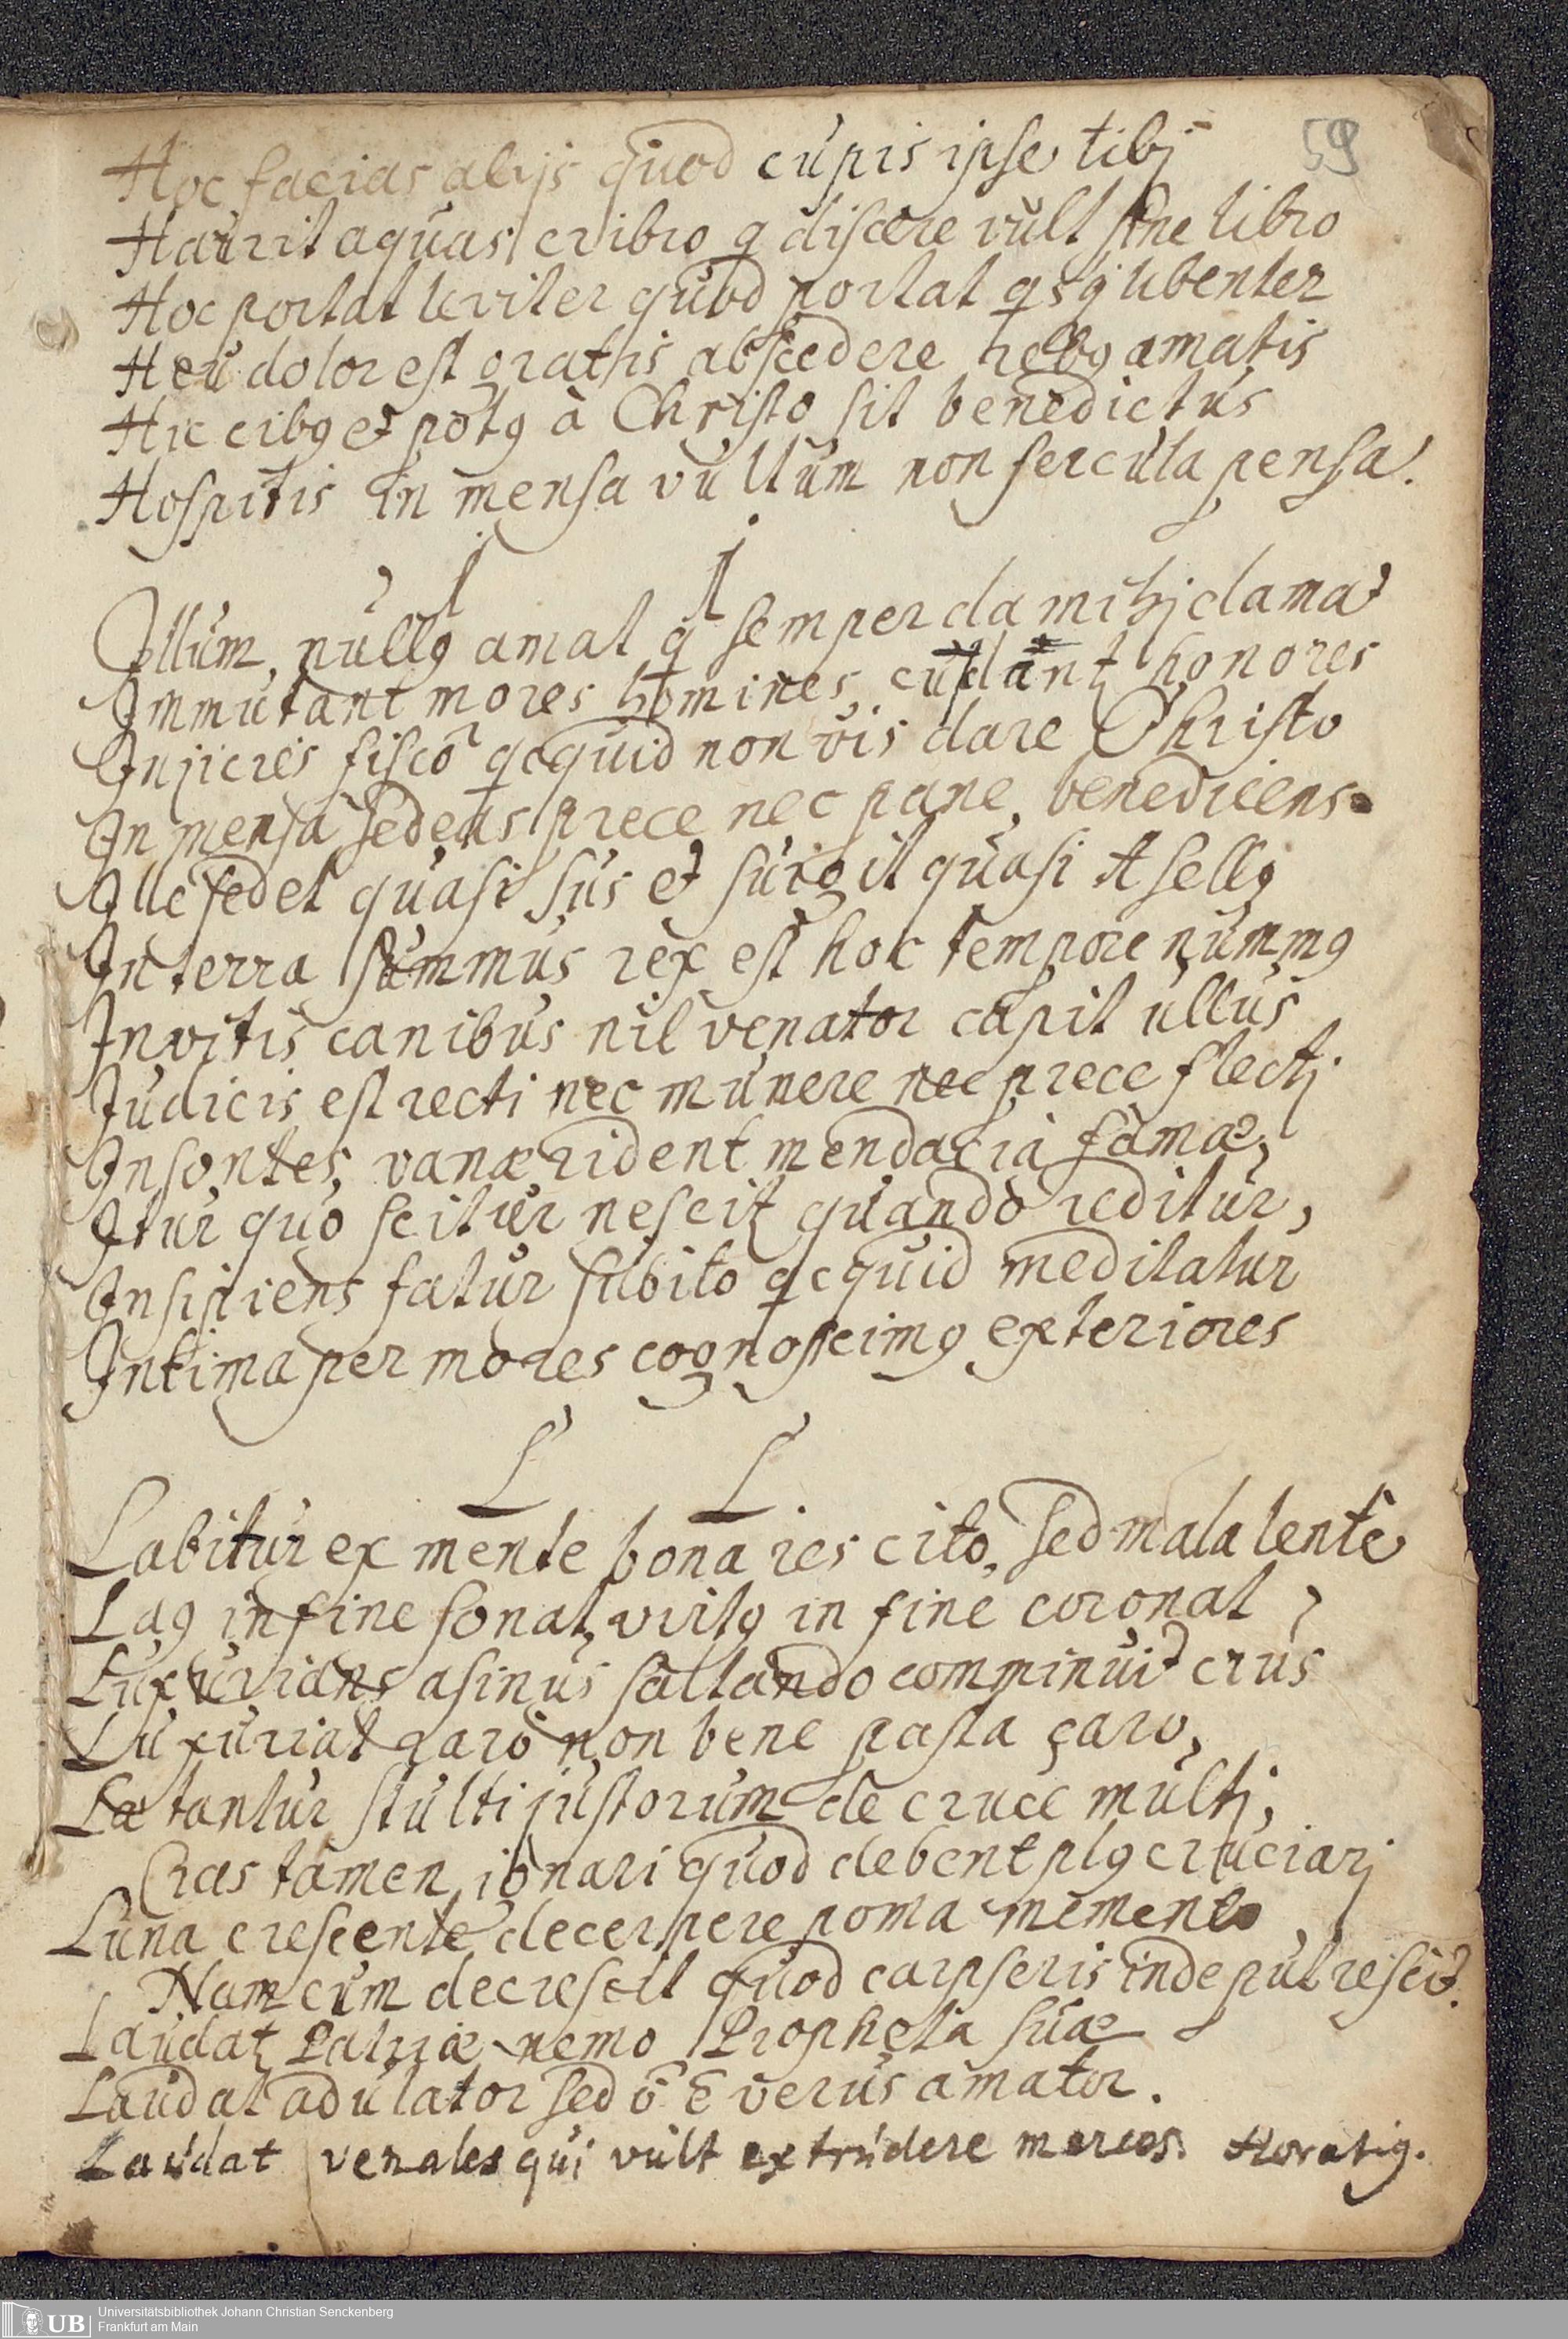 59
Hoc facias alijs quod cupis ipse tibj
Haurit aquas cribro q discere vult sine libro
Hoc portat leviter quod portat qsq lubenter
Heu dolor est gratis abscedere rebꝯ amatis
Hic cibꝯ et potꝯ à Christo sit benedictus
Hospitis in mensa vultum non fercula pensa.
I I
Illum nullꝯ amat q semper da mihj clamat
Immutant mores homines, cu dant honores
Injicies fisco qcquid non vis dare Christo
In mensa sedens prece nec pane benedicens
Ille sedet quasi sus et surgit quasi Asellꝯ
In terra summus rex est hoc tempore nummꝯ
Invitis canibus nil venator capit ullus
Judicis est recti nec munere nec prece flectj
Insontes, vanæ rident mendacia famæ,
Itur quo scitur nescit quando reditur,
Insipiens fatur subito qcquid meditatur
Intima per mores cognoscimꝯ exteriores
L L
Labitur ex mente bona res cito, sed mala lente
Laꝯ in fine sonat, vritꝯ in fine coronat
Luxurians asinus saltando comminuit crus
Luxuriat raro non bene pasta caro,
Lætantur stulti justorum de cruce multj,
Cras tamen ignari quod debent plꝯ cruciarj
Luna crescente decerpere poma memento
Nam cum decrescit quod carpseris inde putrescit.
Laudat Patriæ nemo Propheta suæ
Laudat adulator sed ō ē verus amator.
Laudat venales qui vult extrudere merces. Horatiꝯ.
UB
Universitätsbibliothek Johann Christian Senckenberg
Frankfurt am Main